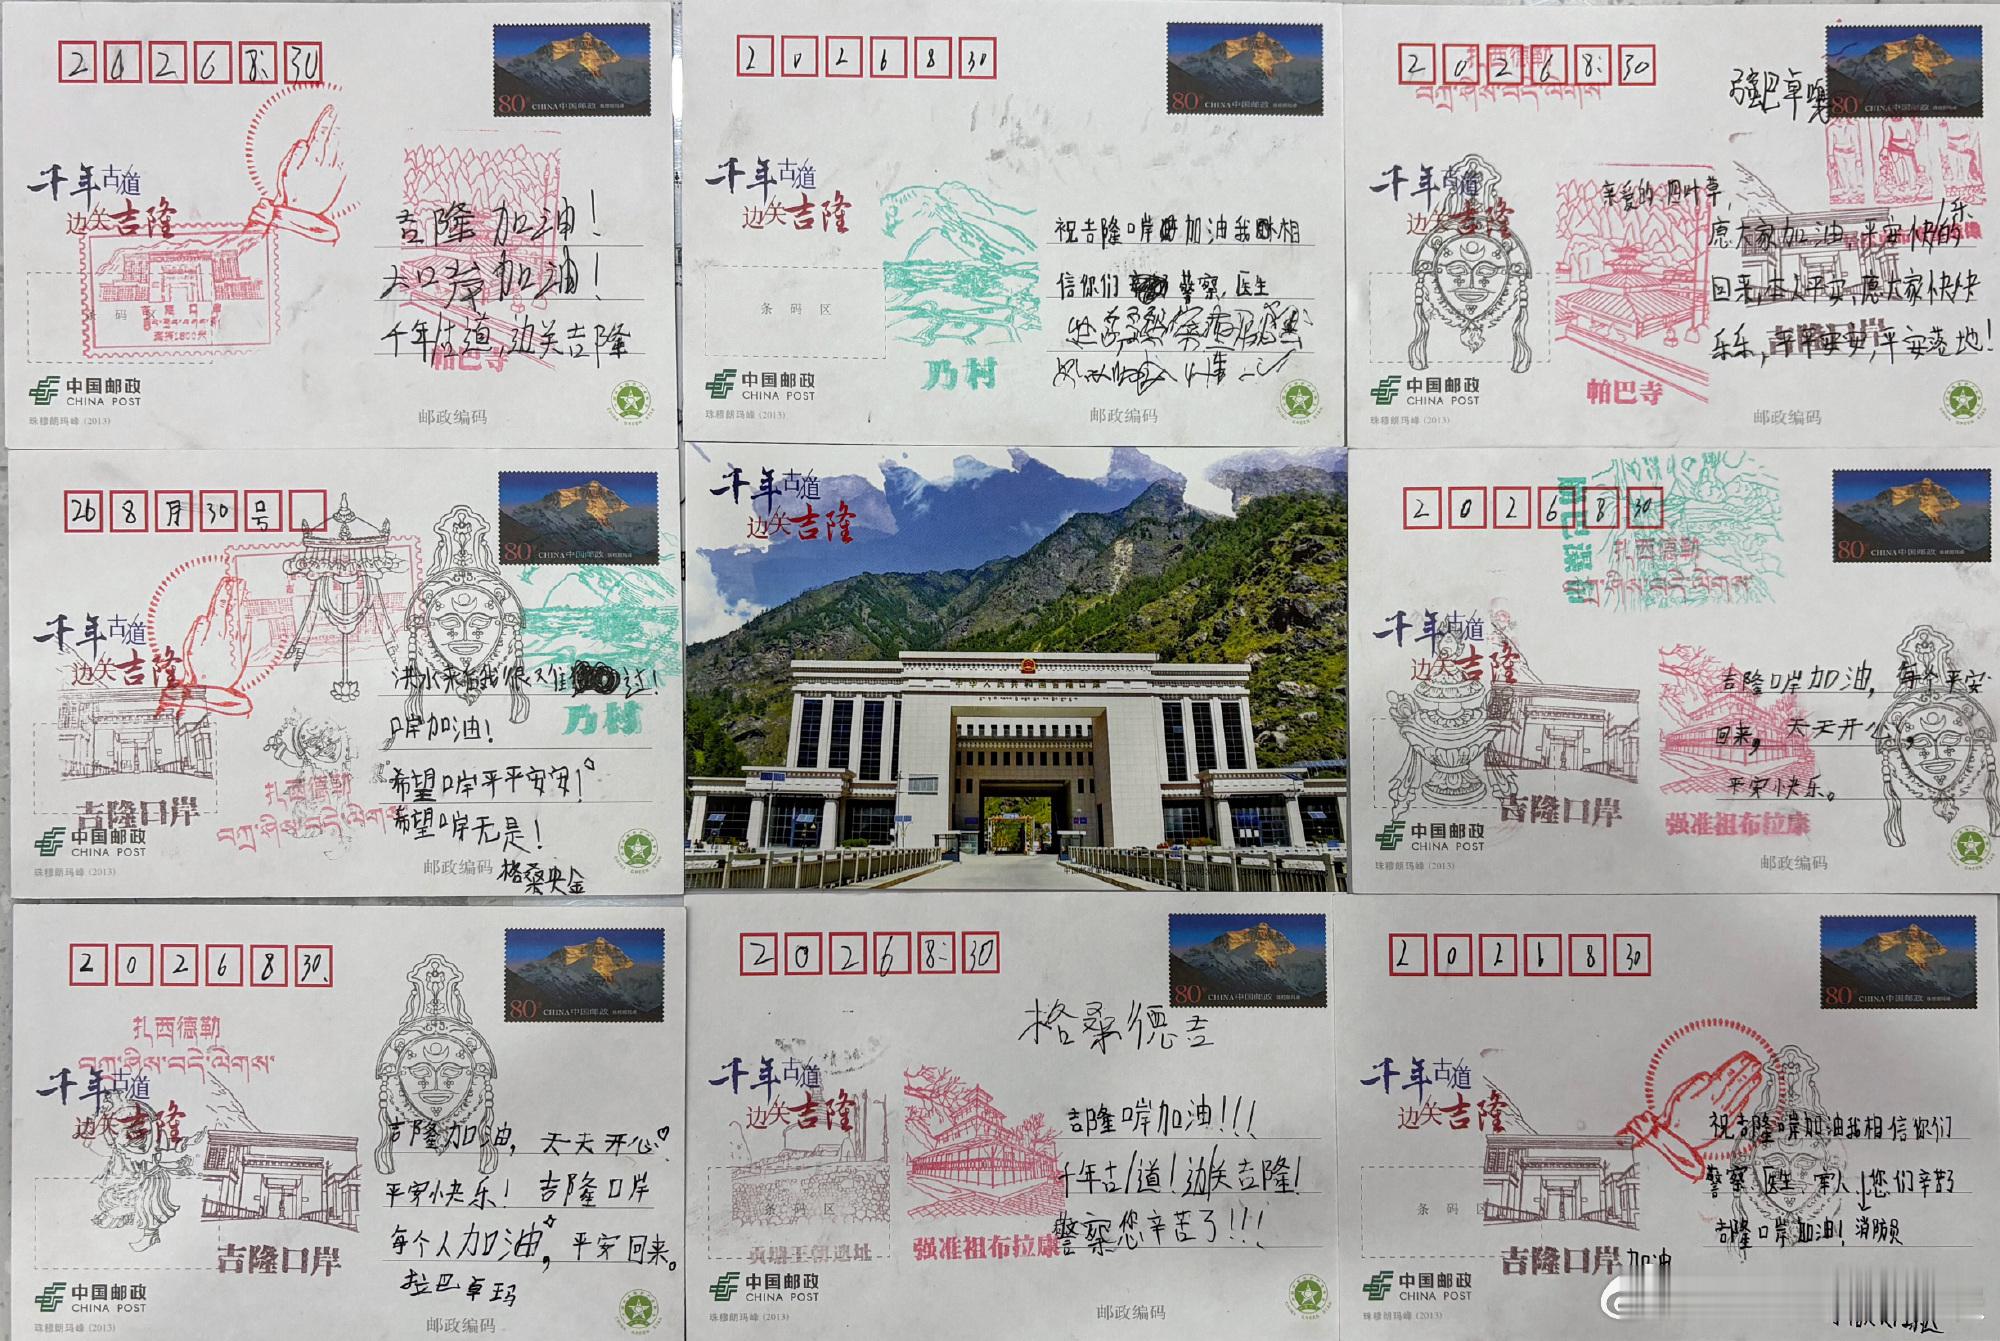 2026 8:30
80 CHINA中国邮政
千年古道
边关吉隆
吉隆加油!
加油!
千年古道,边关吉隆
条码区
吉隆口岸
帕巴寺
中国邮政
CHINA POST
珠穆朗玛峰 (2013)
邮政编码
2026 8 30
80 CHINA中国邮政
千年古道
边关吉隆
祝吉隆口岸加油我相
信你们 警察,医生
条码区
乃村
中国邮政
CHINA POST
珠穆朗玛峰 (2013)
邮政编码
2026 8:30
扎西德勒
80 CHINA中国邮政
强巴卓嘎
千年古道
边关吉隆
亲爱的四叶草,
愿大家加油,平安快乐的
回来,本人平安,愿大家快快
乐乐,平平安安,平安落地!
吉隆口岸
帕巴寺
中国邮政
CHINA POST
珠穆朗玛峰 (2013)
邮政编码
26 8月30号
80 CHINA中国邮政
千年古道
边关吉隆
洪水来后我很难过!
口岸加油!
希望口岸平平安安!
希望口岸无是!
格桑央金
乃村
扎西德勒
吉隆口岸
中国邮政
CHINA POST
珠穆朗玛峰 (2013)
邮政编码
千年古道
边关吉隆
中华人民共和国吉隆口岸
2026 8 30
80 CHINA中国邮政
扎西德勒
千年古道
边关吉隆
吉隆口岸加油,每个平安
回来,天天开心,
平安小快乐。
吉隆口岸
强准祖布拉康
中国邮政
CHINA POST
珠穆朗玛峰 (2013)
邮政编码
2026 8 30.
80 CHINA中国邮政
扎西德勒
བཀྲ་ཤིས་བདེ་ལེགས།
千年古道
边关吉隆
吉隆加油,天天开心♡
平安小快乐!吉隆口岸
每个人加油,平安回来。
拉巴卓玛
吉隆口岸
中国邮政
CHINA POST
珠穆朗玛峰 (2013)
邮政编码
2026 8:30
80 CHINA中国邮政
格桑德吉
千年古道
边关吉隆
吉隆口岸加油!!!
千年古道!边关吉隆!
警察您辛苦了!!!
条码区
贡塘王朝遗址
强准祖布拉康
中国邮政
CHINA POST
珠穆朗玛峰 (2013)
邮政编码
2026 8 30
80 CHINA中国邮政
千年古道
边关吉隆
祝吉隆口岸加油我相信你们
警察 医生 军人,您们辛苦了
吉隆口岸加油!消防员
加油
条码区
吉隆口岸
中国邮政
CHINA POST
珠穆朗玛峰 (2013)